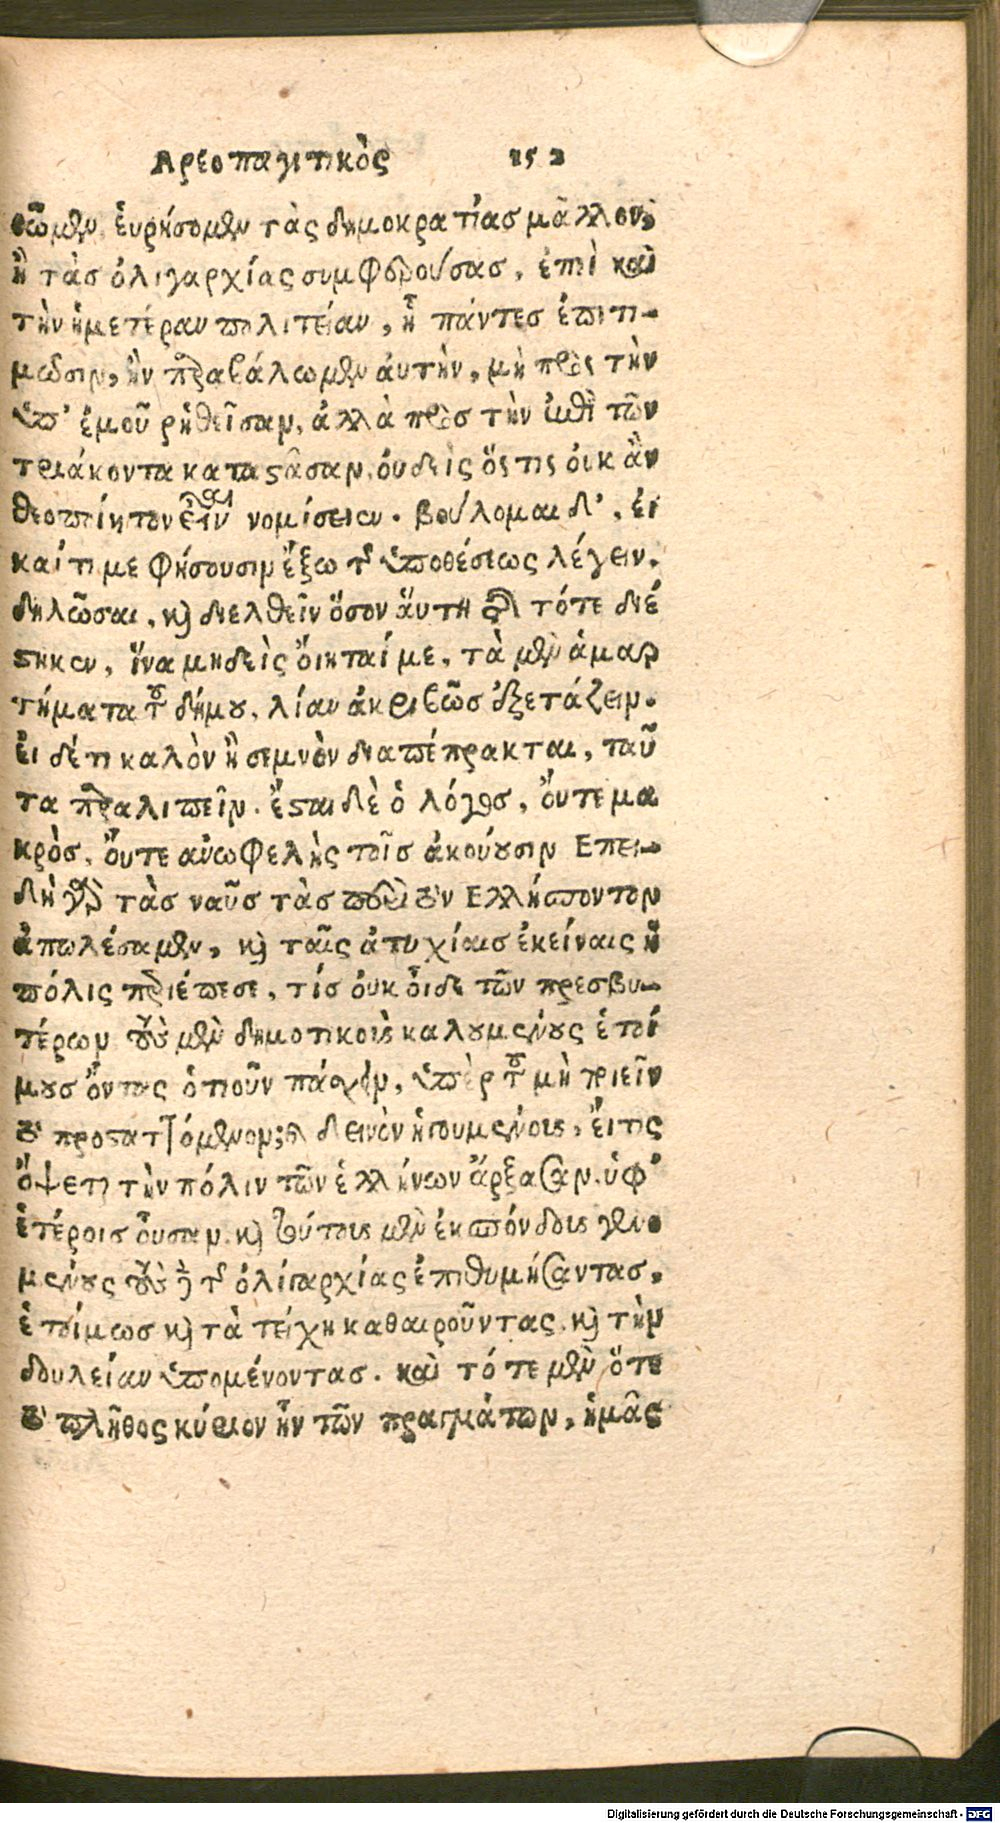 Αρεοπαγιτικὸς 152
θῶμεν, ἑυρήσομεν τὰς δημοκρατίασ μᾶλλον,
ἢ τὰσ ὀλιγαρχίας συμφερούσασ, ἐπεὶ καὶ
τὴν ἡμετέραν πολιτείαν, ᾗ πάντεσ ἐπιτι-
μῶσιν, ἢν παραβάλωμεν ἀυτὴν, μὴ πρὸς τὴν
ὑπ' ἐμοῦ ῥηθεῖσαν, ἀλλὰ πρὸσ τὴν ἐπὶ τῶν
τριάκοντα καταστᾶσαν, ὀυδεὶς ὅςτις ὀυκ ἂν
θεοποίητον εἶναι νομίσειεν. βούλομαι δ', ἐι
καί τι με φήσουσιν ἔξω τῆς ὑποθέσεως λέγειν,
δηλῶσαι, καὶ διελθεῖν ὅσον ἅυτη τῆς τότε διέ
στηκεν, ἵνα μηδεὶς ὄιηταί με, τὰ μὲν ἁμαρ
τήματα τοῦ δήμου, λίαν ἀκριβῶσ ἐξετάζειν.
ἐι δέ τι καλὸν ἢ σεμνὸν διαπέπρακται, ταῦ
τα παραλιπεῖν. ἔσται δὲ ὁ λόγοσ, ὄυτε μα
κρὸσ, ὄυτε ἀνωφελὴς τοῖσ ἀκούουσιν Επει-
δὴ γὰρ τὰσ ναῦσ τὰσ περὶ τὸν Ελλήσποντον
ἀπωλέσαμεν, καὶ ταῖς ἀτυχίαισ ἐκείναις ἡ
πόλις περιέπεσε, τίσ ὀυκ ὀῖδε τῶν πρεσβυ-
τέρων τοὺς μὲν δημοτικοὺς καλουμένους ἑτοί
μουσ ὄντας ὁτιοῦν πάσχειν, ὑπὲρ τοῦ μὴ ποιεῖν
τὸ προσταττόμενον; καὶ δεινὸν ἡγουμένους, ἔιτις
ὄψεται τὴν πόλιν τῶν ἑλλήνων ἄρξασαν, ὑφ'
ἑτέροισ ὀῦσαν. καὶ τούτοις μὲν ἐκσπόνδους γενο
μένους τοὺς δὲ τῆς ὀλιγαρχίας ἐπιθυμήσαντασ,
ἑτοίμωσ καὶ τὰ τείχη καθαιροῦντας, καὶ τὴν
δουλείαν ὑπομένοντασ. καὶ τότε μὲν ὅτε
τὸ πλῆθος κύριον ἦν τῶν πραγμάτων, ἡμᾶς
Digitalisierung gefördert durch die Deutsche Forschungsgemeinschaft - DFG